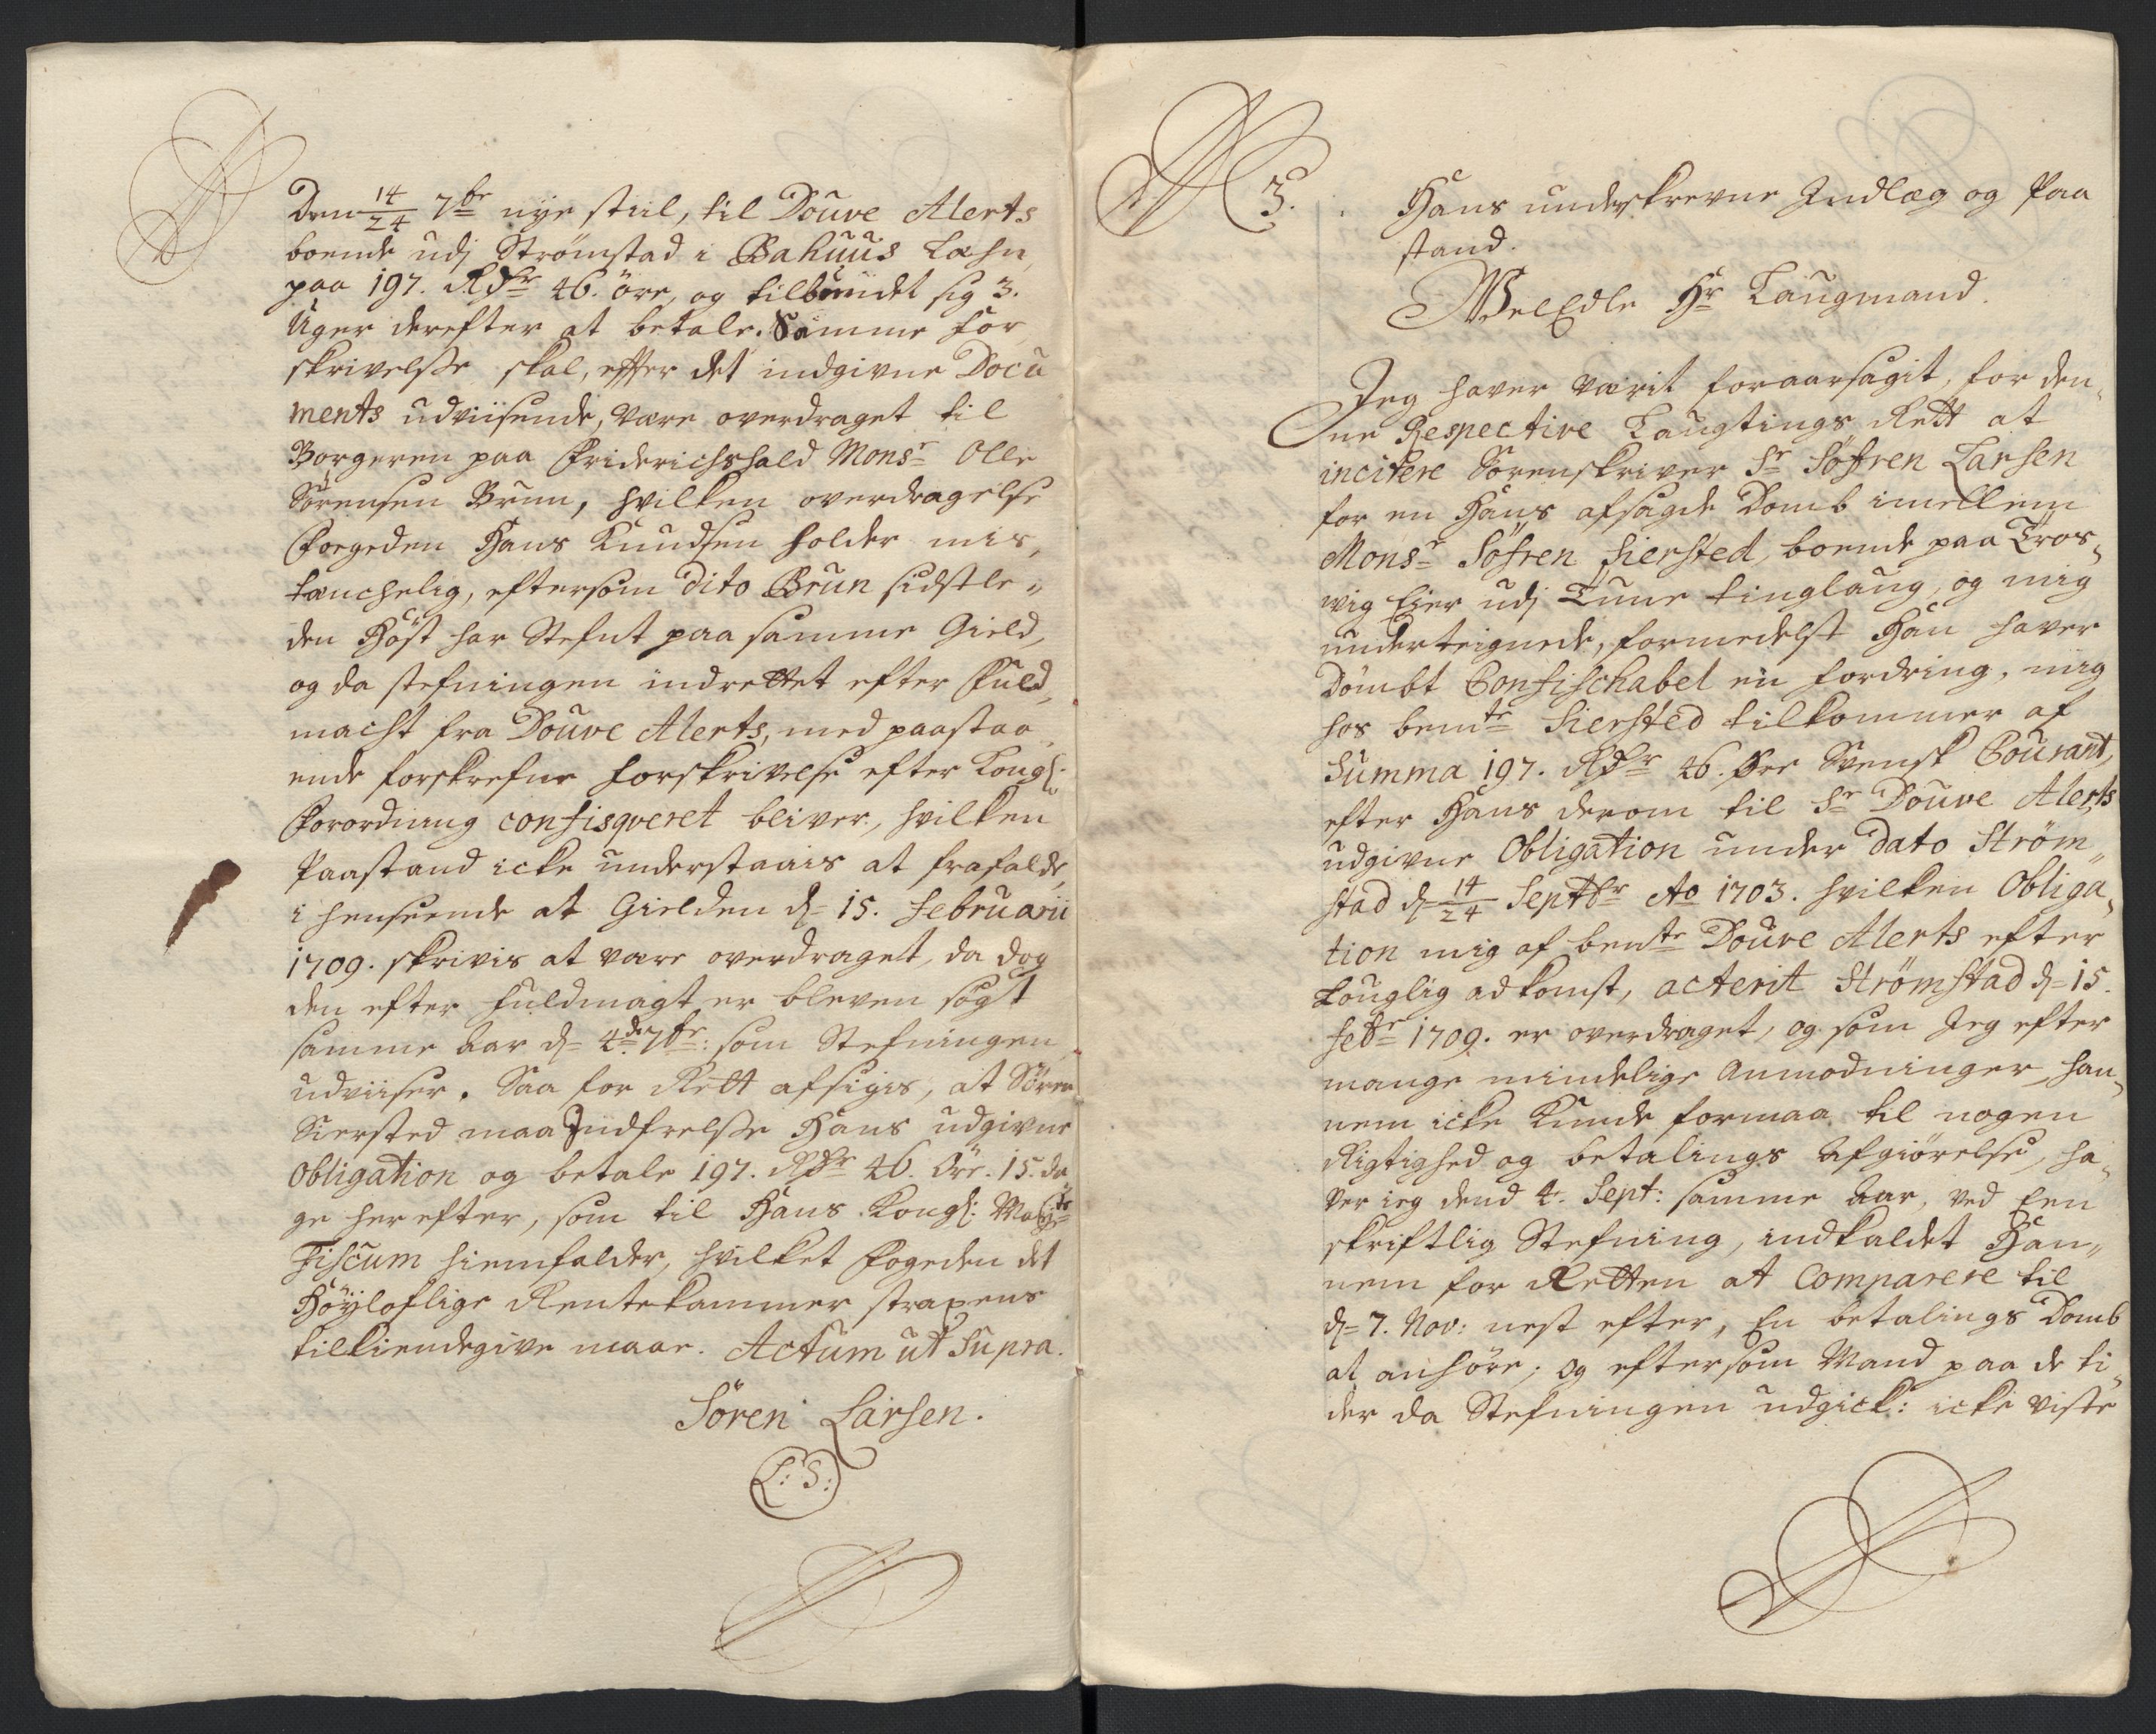 Den 14/24 7br nÿe stiil, til Douve Alerts
boende udj Strømstad i Bahuus Læhn,
paa 197. Rdr 46. öre, og tilbundet sig 3.
Uger derefter at betale. Samme for
skrivelsse skal, efter det indgivne Docu
ments udviisende, være overdraget til
Borgeren paa Friderichshald Monsr Olle
Sørensen Brun, hvilken overdragelse
Foegeden Hans Knudsen holder mis,,
tænchelig, eftersom dito Brun sidstle,,
den Höst har Stefnt paa samme Gield,
og da stefningen indrettet efter Fuld,,
macht fra Douve Alerts, med paastaa,,
ende forskrefne forskrivelse efter Kongl:
Forordning confisqveret bliver, hvilken
Paastand icke understaaes at frafalde,
i henseende at Gielden d= 15. Februarii
1709. skrivis at være overdraget, da dog
den efter fuldmagt er bleven søgt
samme Aar d= 4de 7br: som Stefningen
udviiser. Saa for Rett afsigis, at Sören
Siersted maa Indfrelsse Hans udgivne
Obligation og betale 197. Rdr 46. Öre. 15. da
ge herefter, som til Hans Kongl: Mayts
Fiscum hiemfalder, hvilket Fogeden det
Höyloflige Rentekammer straxens
tilkiendegive maae. Actum ut Supra.
Sören Larsen.
L:S:
3. Hans underskrevne Indlæg og Paa
stand.
WelEdle Hr Laugmand.
Jeg haver værit foraarsagit, for den,,
ne Respective Laugtings Rett at
incitere Sorenskriver Sr Söfren Larsen
for en Hans afsagde Domb imellem
Monsr Söfren Siersted, boende paa Tros,,
wig Eier udj Tune tinglaug, og mig
underteignede, formedelst Han haver
Dömbt Confischabel en fordring, mig
hos bemte Siersted tilkommer af
Summa 197. Rdr 46. Öre Svensk Courant,
efter Hans derom til Sr Douve Alerts
udgivne Obligation under Dato Ström,,
stad d= 14/24 Septbr Ao 1703. hvilken Obliga,,
tion mig af bemte Douve Alerts efter
Louglig adkomst, acterit Strömstad d= 15.
Febr 1709. er overdraget, og som Jeg efter
mange mindelige Anmodninger, han,,
nem icke Kunde formaa til nogen
Rigtighed og betalings Afgiörelse, ha,,
ver ieg dend 4. Sept: samme Aar, ved Een
skriftlig Stefning, indkaldet Han,,
nem for Retten at Comparere til
d= 7. Nov: nest efter, En betalings Domb
at anhöre; og eftersom Mand paa de ti,,
der da Stefningen udgick: icke viste